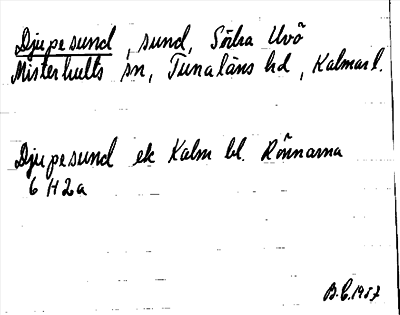 Djupesund, sund, Södra Uvö
Misterhults sn, Tunaläns hd, Kalmar l.
Djupesund ek Kalm bl. Rönnarna
6 H 2a
B.C. 1957